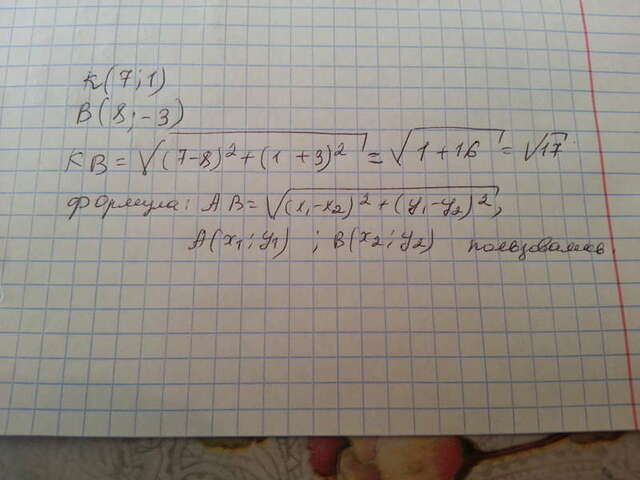 K(7;1)
B(8;-3)
KB=√(7-8)²+(1+3)² = √1+16 = √17
формула: AB=√(x₁-x₂)²+(y₁-y₂)²,
A(x₁;y₁) ; B(x₂;y₂) пользовались